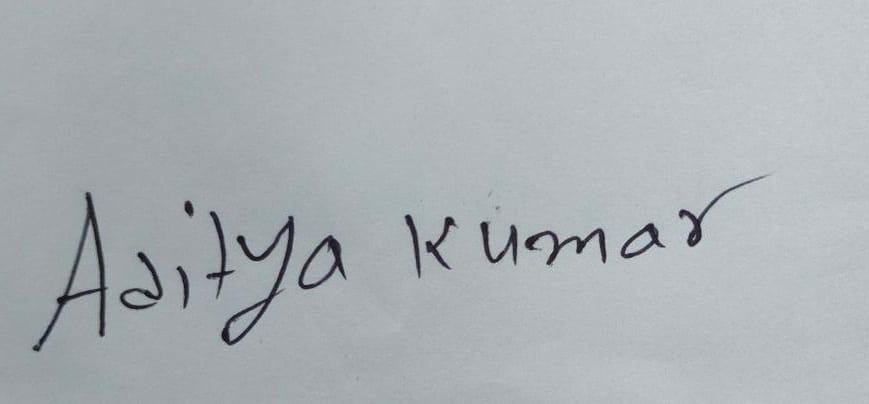 Aditya Kumar